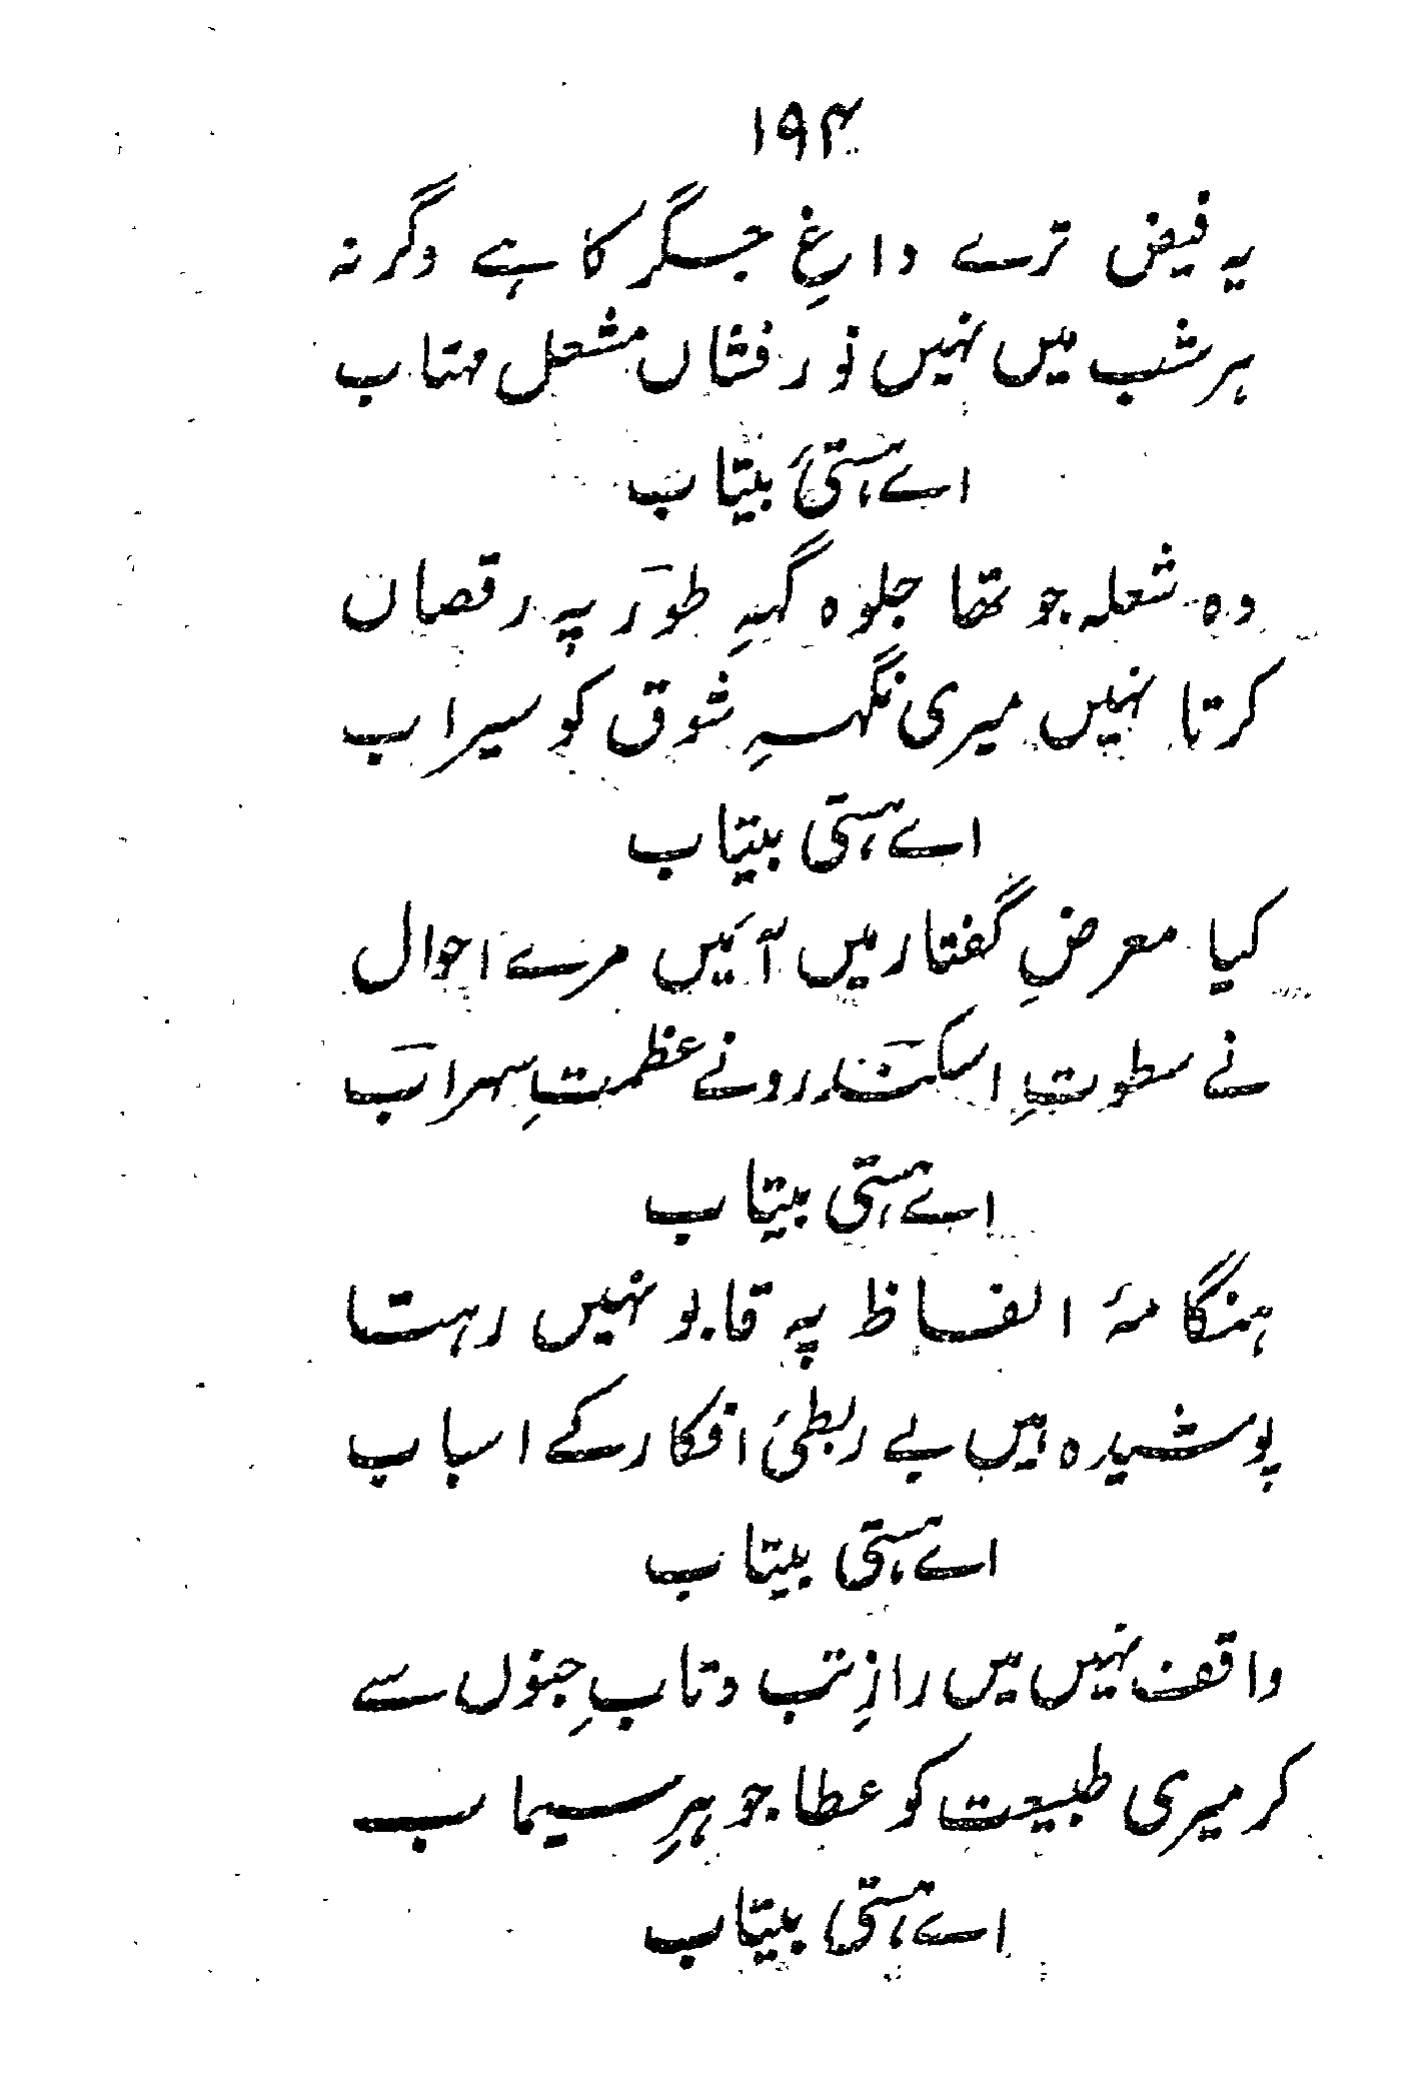 ۱۹۴
یہ فیض ترے داغِ جگر کا ہے وگرنہ
ہر شب میں نہیں نور فشاں مشعل مہتاب
اے ہستیٔ بیتاب
وہ شعلہ جو تھا جلوہ گہِ طورؔ پہ رقصاں
کرتا نہیں میری نگہِ شوق کو سیراب
اے ہستی بیتاب
کیا معرضِ گفتار میں آئیں مرے احوال
نے سطوتِ اسکندرؔ و نے عظمتِ سہرابؔ
اے ہستی بیتاب
ہنگامۂ الفاظ پہ قابو نہیں رہتا
پوشیدہ ہیں بے ربطیٔ افکار کے اسباب
اے ہستی بیتاب
واقف نہیں میں رازِ تب و تابِ جنوں سے
کر میری طبیعت کو عطا جوہرِ سیماب
اے ہستی بیتاب